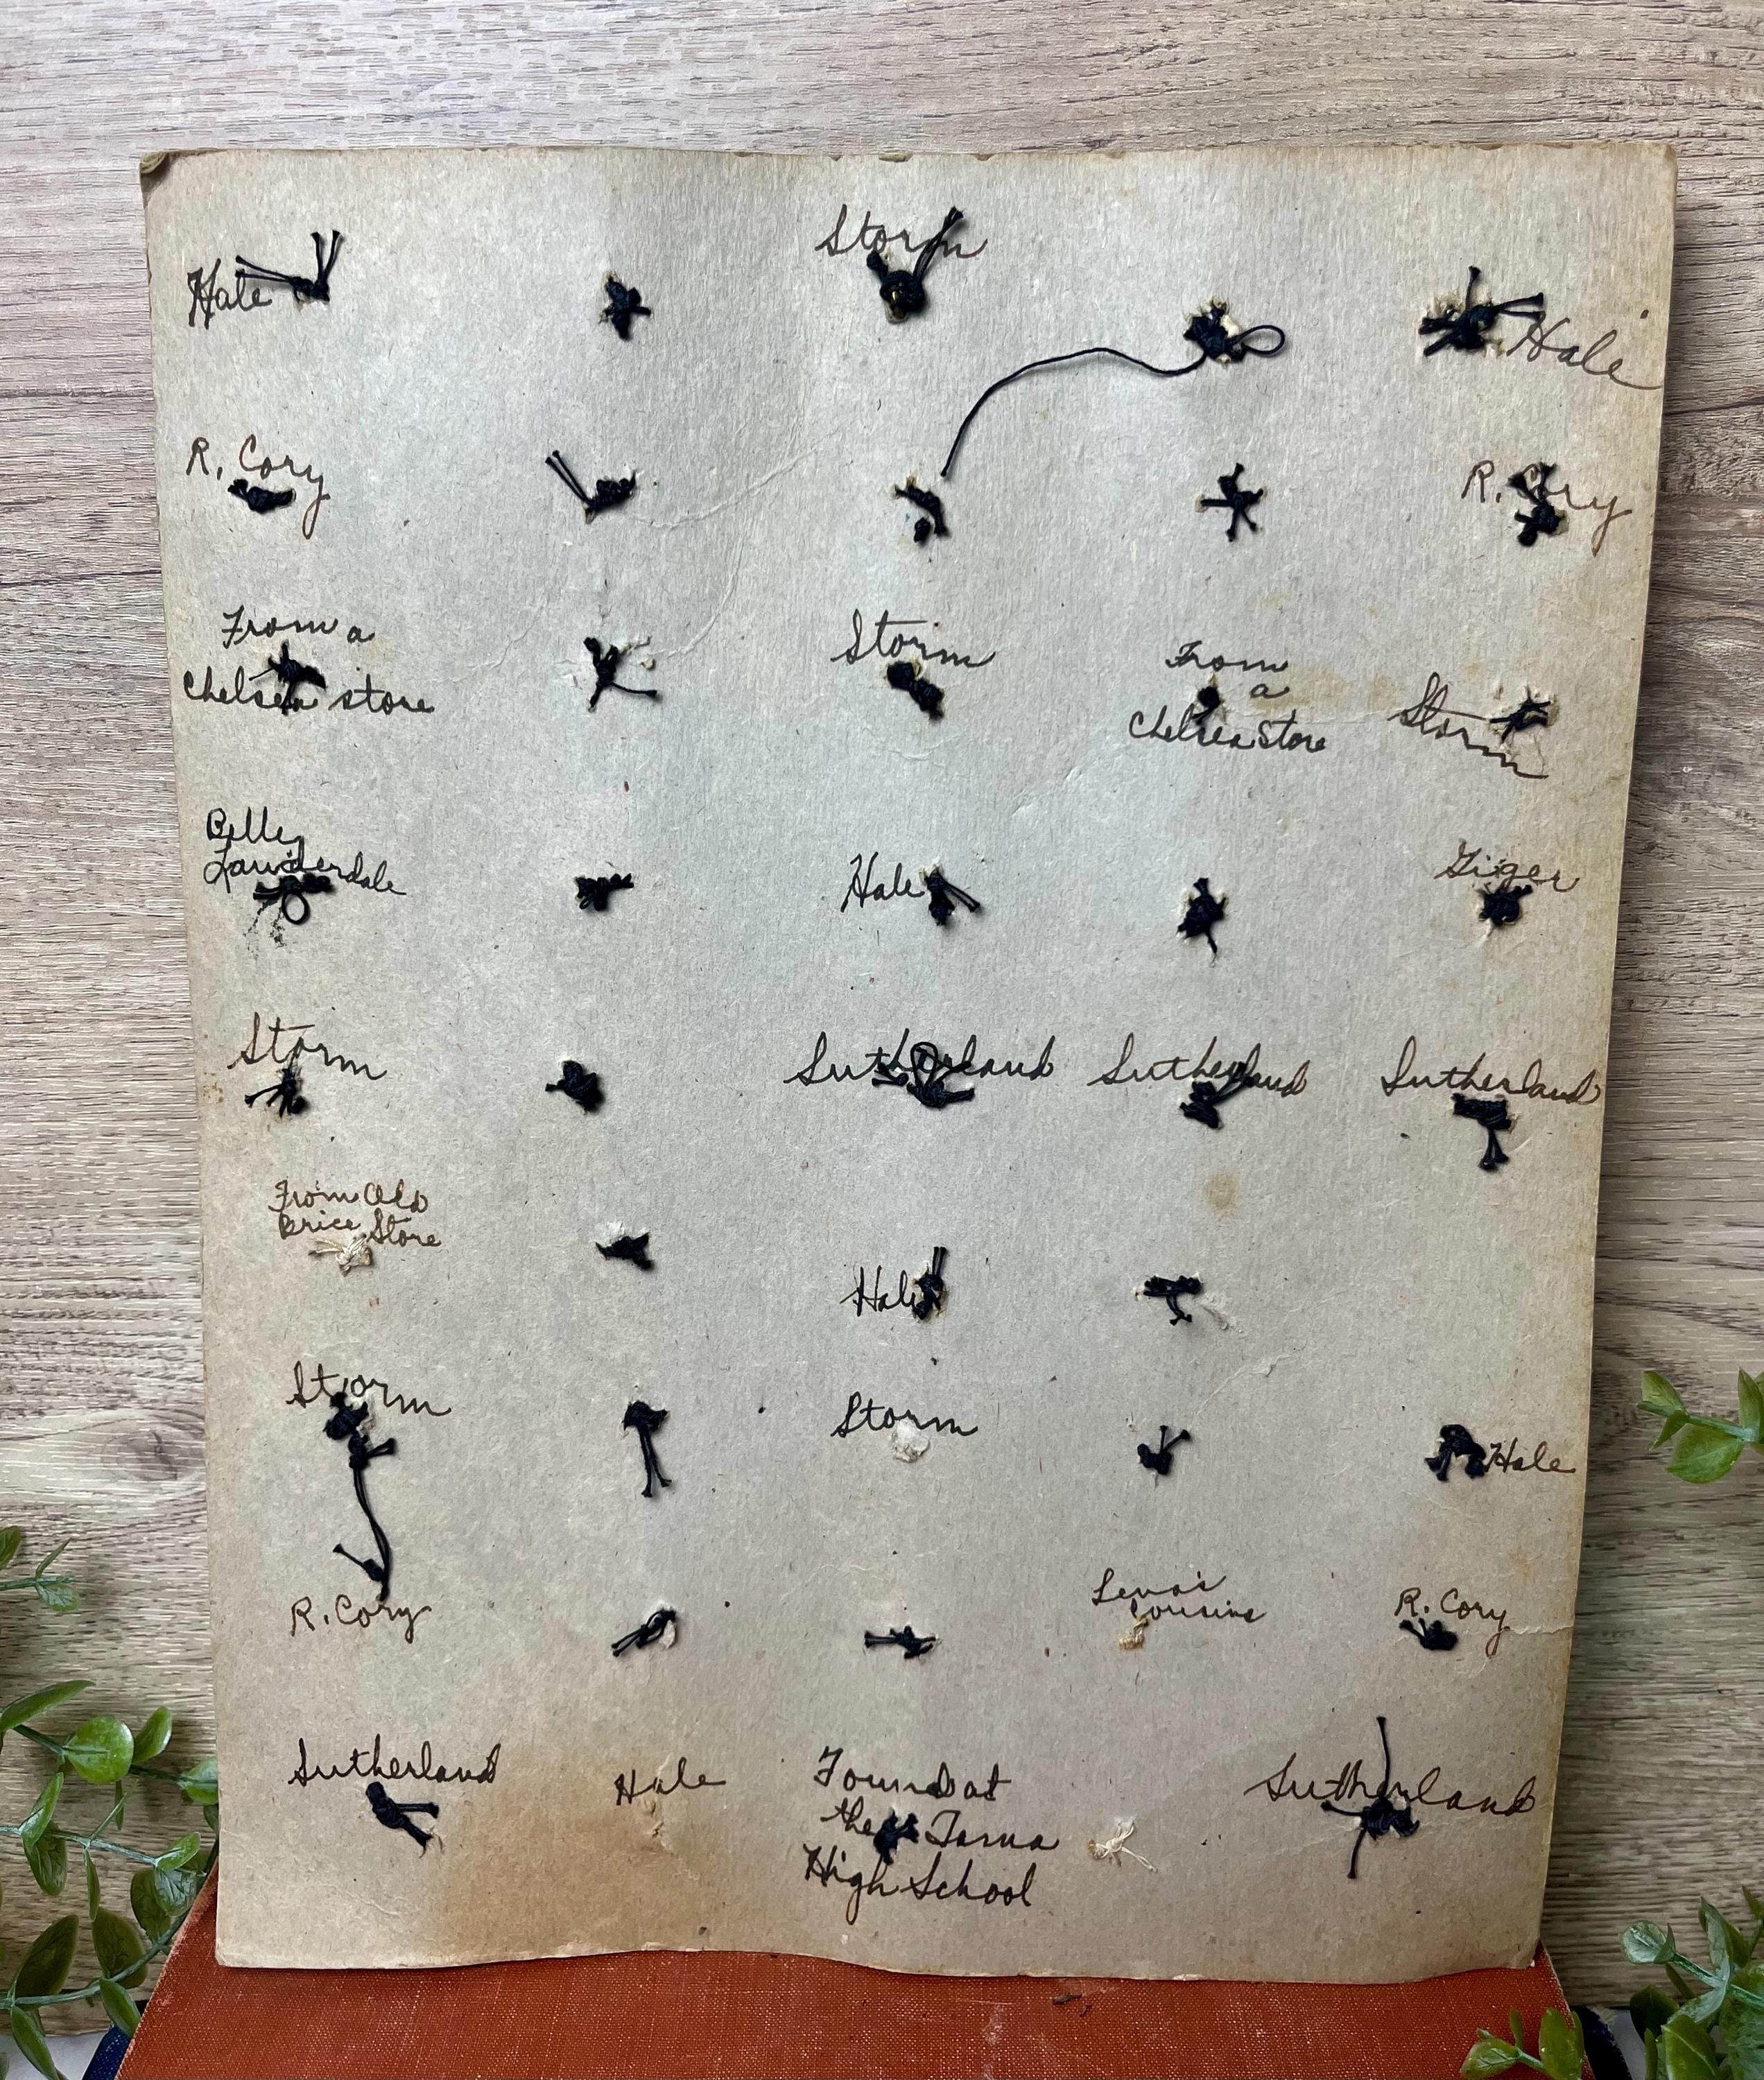 Storm
Hale
Hale
R. Cory
R. Cory
From a
Chelsea store
Storm
From
a
Chelsea Store
Storm
Billy
Lauderdale
Hale
Giger
Storm
Sutherland
Sutherland
Sutherland
From Old
Brice Store
Hale
Storm
Storm
Hale
R. Cory
Lena's
cousins
R. Cory
Sutherland
Hale
Found at
the Tama
High School
Sutherland